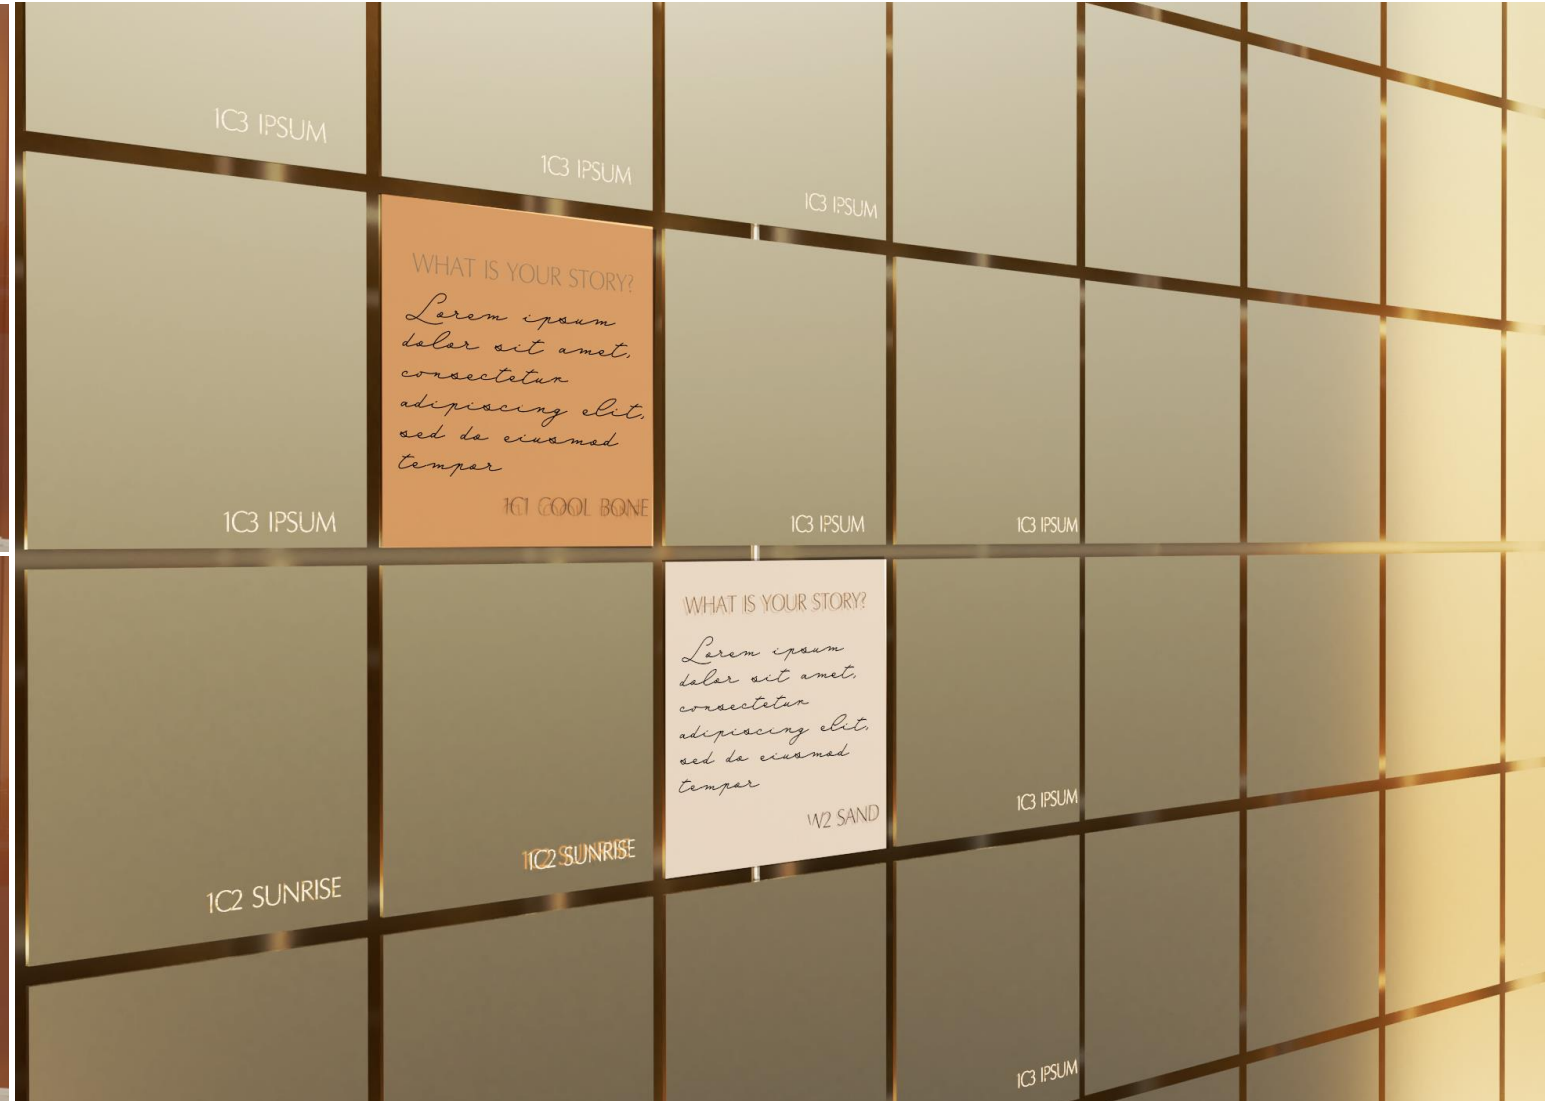 1C3 IPSUM
1C3 IPSUM
1C3 IPSUM
WHAT IS YOUR STORY?
Lorem ipsum
dolor sit amet,
consectetur
adipiscing elit,
sed do eiusmod
tempor
1C1 COOL BONE
1C3 IPSUM
1C3 IPSUM
1C3 IPSUM
WHAT IS YOUR STORY?
Lorem ipsum
dolor sit amet,
consectetur
adipiscing elit,
sed do eiusmod
tempor
W2 SAND
1C2 SUNRISE
1C2 SUNRISE
1C3 IPSUM
1C3 IPSUM